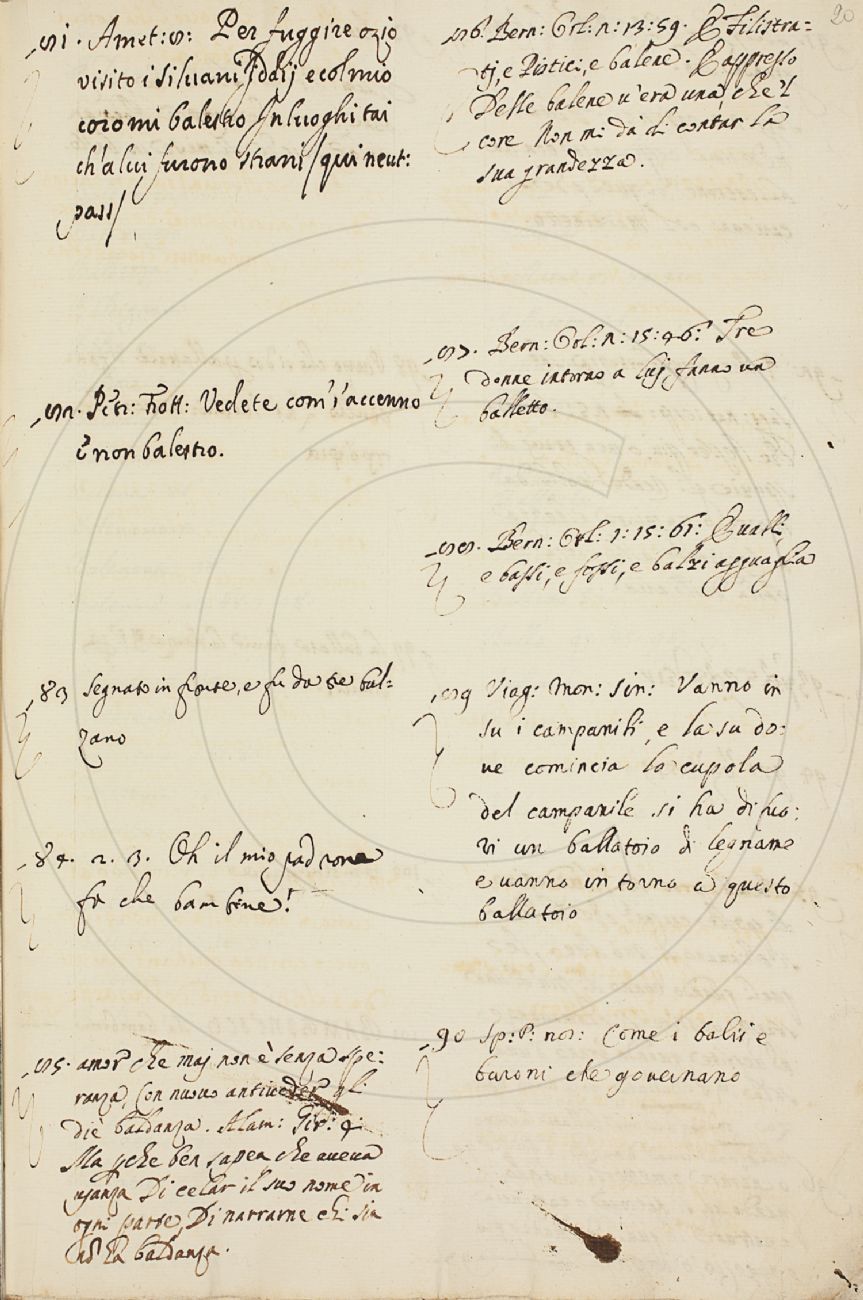 81. Amet: 8: Per fuggire ozio
visito i Silvani Iddij e col mio
coro mi balestro In luoghi tai
ch'a lui furono strani / qui neut:
pass/
82. Petr: Frott: Vedete com'i' accenno
E non balestro.
83 Segnato in fronte, e fu da tre bal=
zano
84. 2. 3. Oh il mio padrone
fa che bambine!
85. amor che maj non è senza spe:
ranza, Con nuovo antiveder gli
diè baldanza. Alam: Gir: 4:
Ma perche ben sapea che aveva
usanza Di celar il suo nome in
ogni parte, Di narrarne chi sia
baldanza.
20
86. Bern: Orl: 2: 13: 59. E Filistra=
tj, e Pistici, e balene. E appresso
Delle balene v'era una, che 'l
core Non mi dà di contar la
sua grandezza.
87. Bern: Orl: 2: 15: 46: Tre
donne intorno a luj fanno un
balletto.
88. Bern: Orl: 1: 15: 61: E valli,
e bassi, e fossi, e balzi agguaglia
89 Viag: Mon: Sin: Vanno in
su i campanili, e la su do:
ve comincia la cupola
del campanile si ha di fuo:
ri un ballatoio di legname
e vanno intorno a questo
ballatoio
90 Sp: P: nos: Come i balii e
baroni che governano